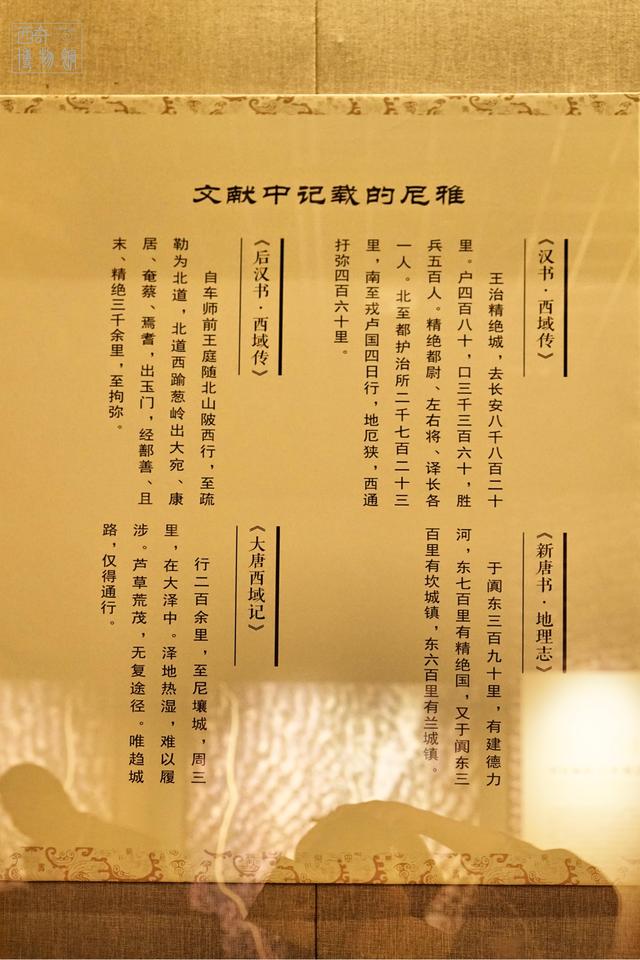 西奇
博物館
文献中记载的尼雅
《汉书·西域传》
王治精绝城，去长安八千八百二十
里。户四百八十，口三千三百六十，胜
兵五百人。精绝都尉、左右将、译长各
一人。北至都护治所二千七百二十三
里，南至戎卢国四日行，地厄狭，西通
扜弥四百六十里。
《后汉书·西域传》
自车师前王庭随北山陂西行，至疏
勒为北道，北道西踰葱岭出大宛、康
居、奄蔡、焉耆，出玉门，经鄯善、且
末、精绝三千余里，至拘弥。
《新唐书·地理志》
于阗东三百九十里，有建德力
河，东七百里有精绝国，又于阗东三
百里有坎城镇，东六百里有兰城镇。
《大唐西域记》
行二百余里，至尼壤城，周三
里，在大泽中。泽地热湿，难以履
涉。芦草荒茂，无复途径。唯趋城
路，仅得通行。